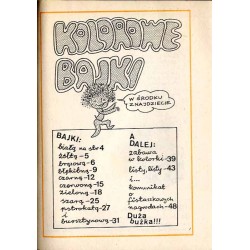 KOLOROWE
BAJKI
W ŚRODKU
ZNAJDZIECIE
BAJKI:
białą na str 4
żółtą-5
brązową-6
błękitną-9
czarną-12
czerwoną-15
zieloną-18
szarą-25
pstrokatą-27
i
bursztynową-31
A
DALEJ:
zabawa
w kolorki-39
listy, listy-43
i...
komunikat
o
fistaszkowych
nagrodach-48
Duża
buźka!!!